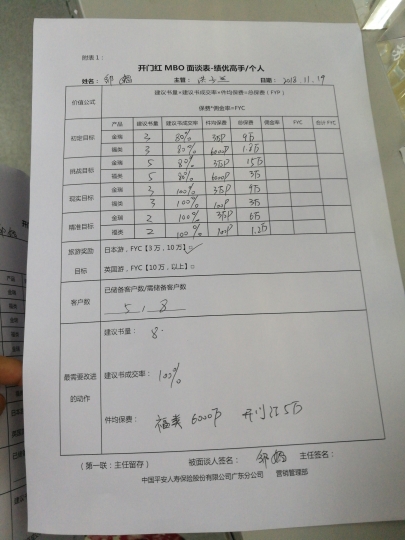 附表1：
开门红 MBO 面谈表-绩优高手/个人
姓名： 主管： 日期： 2018.11.19
价值公式 建议书量×建议书成交率×件均保费=总保费（FYP）
保费*佣金率=FYC
产品 建议书量 建议书成交率 件均保费 总保费 佣金率 FYC 合计 FYC
初定目标 金瑞 2 80% 3万P 9万
福类 3 80% 6000P 1.8万
挑战目标 金瑞 5 80% 3万P 15万
福类 5 80% 6000P 3万
现实目标 金瑞 3 100% 3万P 9万
福类 3 100% 100P 3万
精准目标 金瑞 2 100% 3万P 6万
福类 2 100% 100P 1.2万
旅游奖励 日本游，FYC【3 万，10 万】□✓
目标 英国游，FYC【10 万，以上】□
客户数 已储备客户数/需储备客户数
5 / 8
建议书量： 8
最需要改进 建议书成交率： 100%
的动作
件均保费： 福类 6000P 开门红5万
（第一联：主任留存） 被面谈人签名： 主任签名：
中国平安人寿保险股份有限公司广东分公司 营销管理部